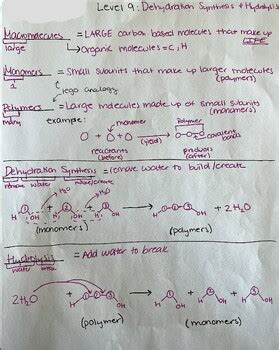 Level 9: Dehydration Synthesis + Hydrolysis
Macromolecules = LARGE carbon based molecules that make up LIFE
large
Organic molecules = C, H
Monomers = Small subunits that make up larger molecules
1
(polymers)
lego analogy
Polymers = Large molecules made up of small subunits
many
(monomers)
example:
monomer
Polymer
O + O + O → O-O-O
(yield)
covalent bonds
reactants
(before)
products
(after)
Dehydration Synthesis = remove water to build/create
remove water
make/create
H₂O
H₂O
1 + 2 + 3 → 1-2-3 + 2H₂O
(monomers)
(polymers)
Hydrolysis = Add water to break
water
break
2H₂O + 1-2-3 → 1 + 2 + 3
(polymer)
(monomers)